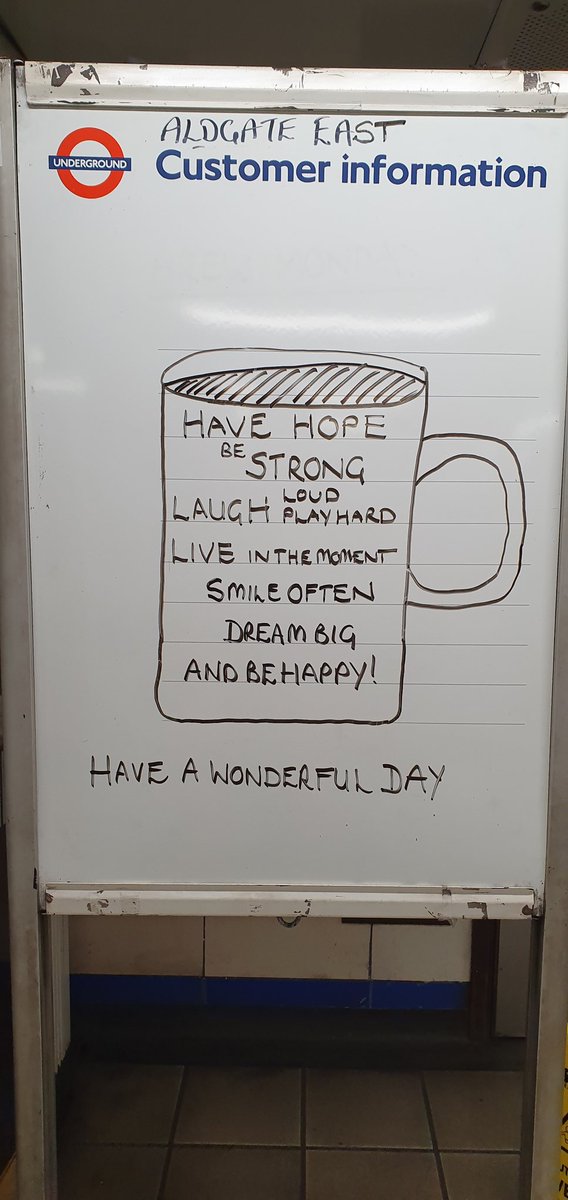 ALDGATE EAST
UNDERGROUND
Customer information
HAVE HOPE
BE STRONG
LAUGH LOUD
PLAY HARD
LIVE IN THE MOMENT
SMILE OFTEN
DREAM BIG
AND BE HAPPY!
HAVE A WONDERFUL DAY